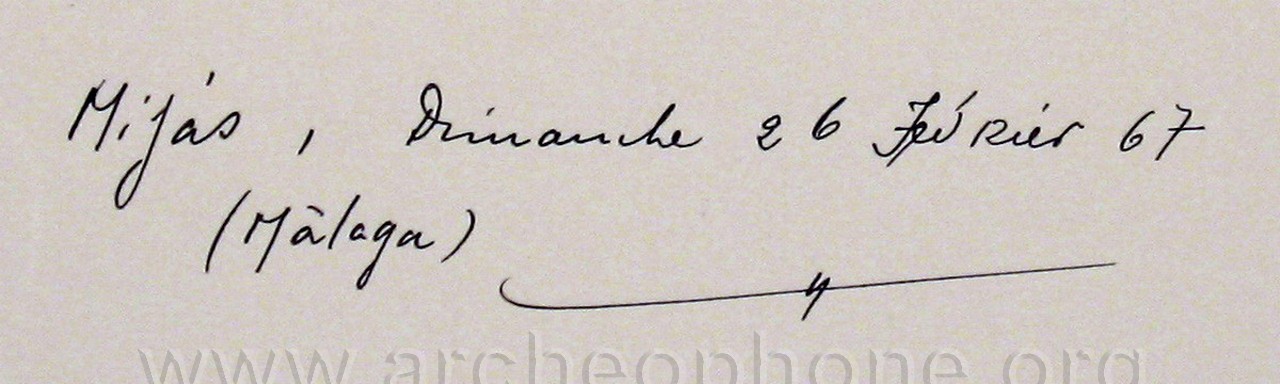 Mijás, Dimanche 26 Février 67
(Màlaga)
www.archeophone.org